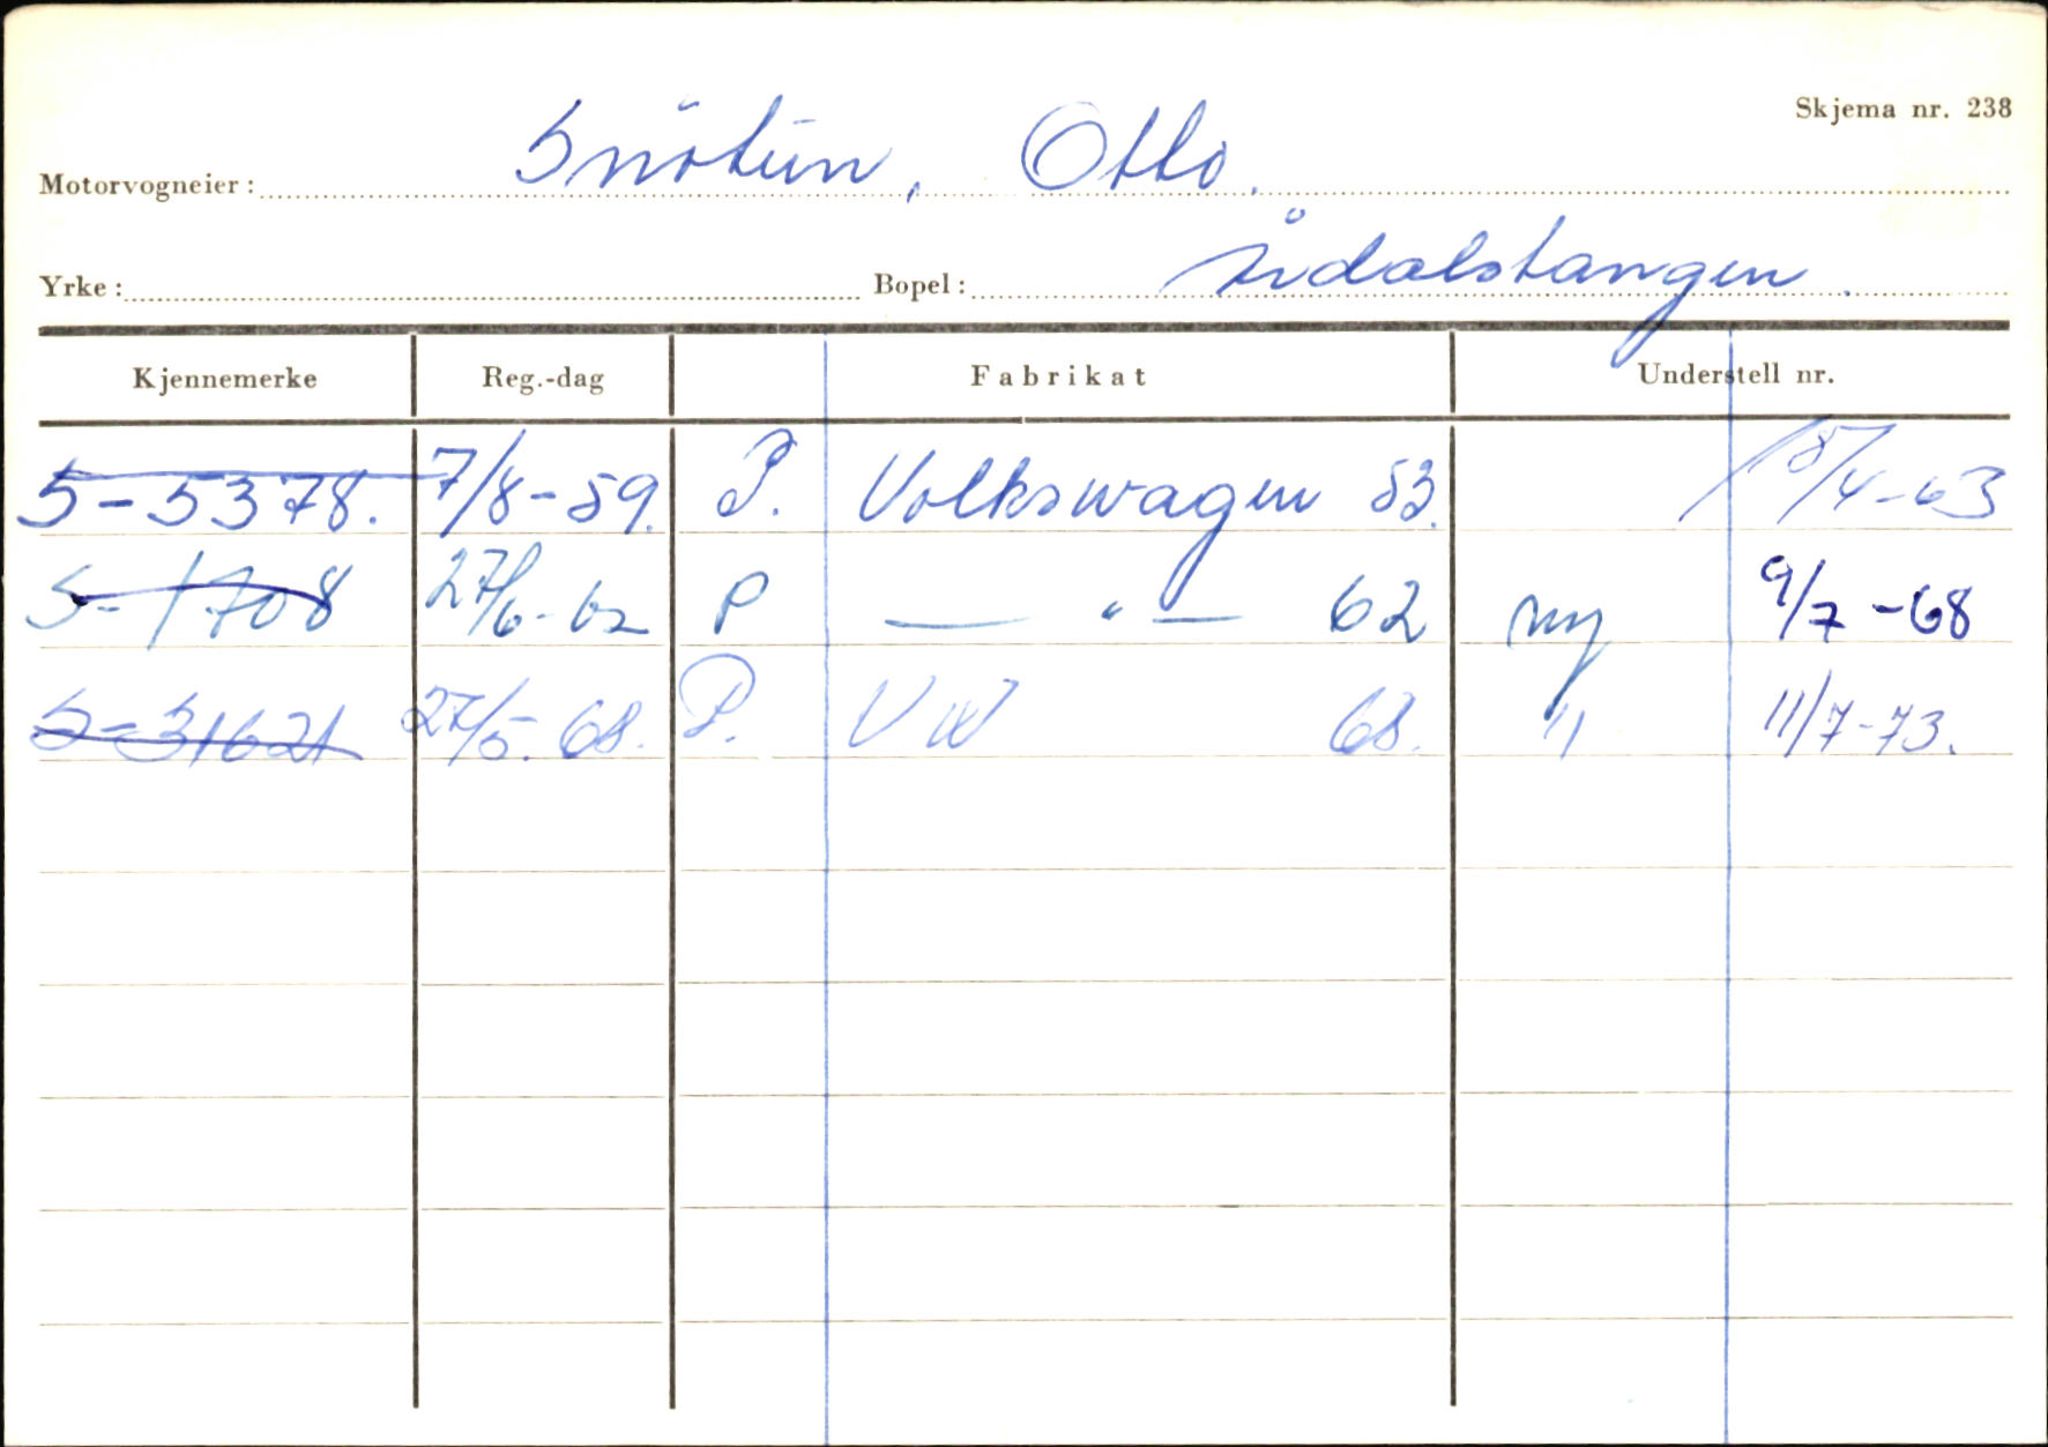 Skjema nr. 238
Motorvogneier: Snötun, Otto.
Yrke: Bopel: Årdalstangen.
Kjennemerke Reg.-dag Fabrikat Understell nr.
S-5378. 7/8-59. P. Volkswagen 53. 8/4-63
S-1708 27/6-62 P —"— 62 ny 9/7-68
S-31621 27/5.68. P. VW 68. " 11/7-73.